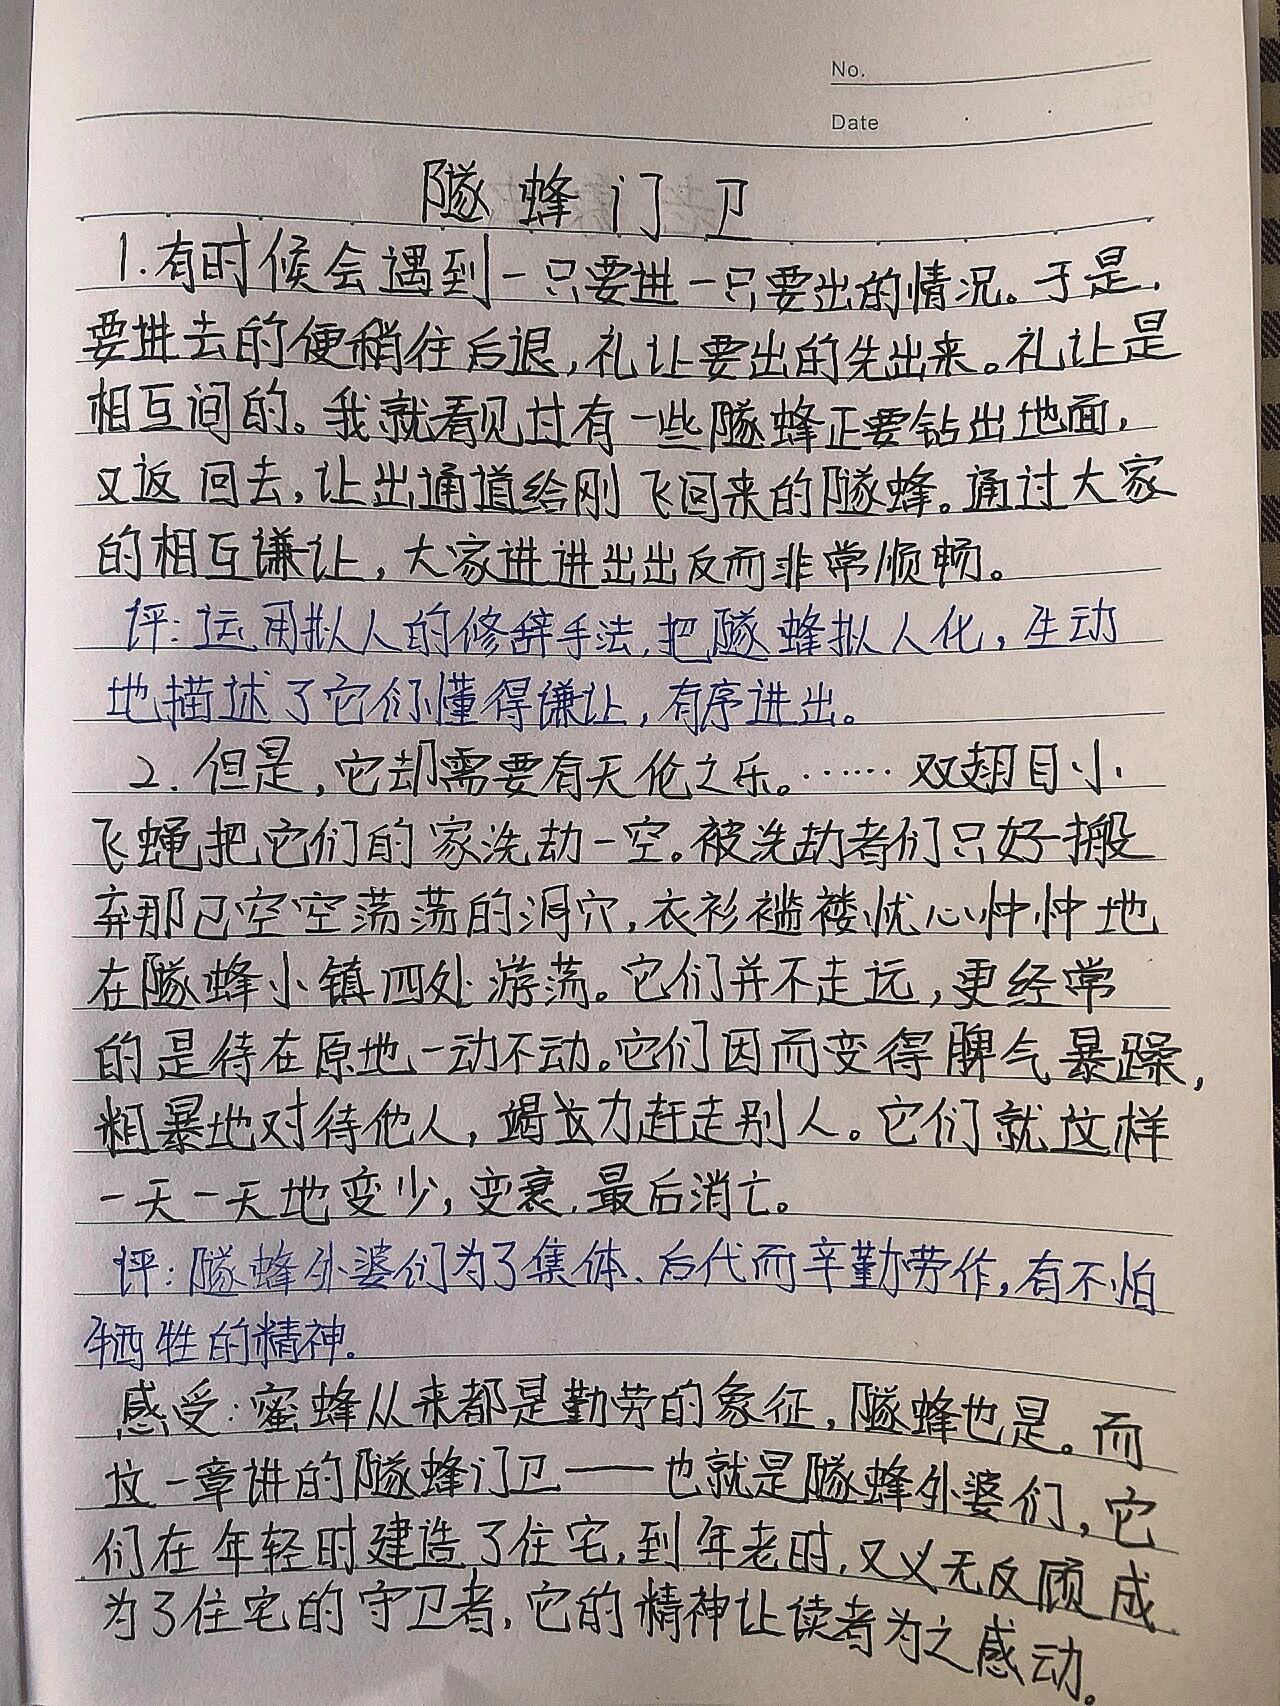 No.
Date
隧蜂门卫
1.有时候会遇到一只要进一只要出的情况。于是,
要进去的便稍往后退,礼让要出的先出来。礼让是
相互间的。我就看见过有一些隧蜂正要钻出地面,
又返回去,让出通道给刚飞回来的隧蜂。通过大家
的相互谦让,大家进进出出反而非常顺畅。
评:运用拟人的修辞手法,把隧蜂拟人化,生动
地描述了它们懂得谦让,有序进出。
2.但是,它却需要有天伦之乐。……双翅目小
飞蝇把它们的家洗劫一空。被洗劫者们只好搬
弃那已空空荡荡的洞穴,衣衫褴褛忧心忡忡地
在隧蜂小镇四处游荡。它们并不走远,更经常
的是待在原地一动不动。它们因而变得脾气暴躁,
粗暴地对待他人,竭力赶走别人。它们就这样
一天一天地变少,变衰,最后消亡。
评:隧蜂外婆们为了集体、后代而辛勤劳作,有不怕
牺牲的精神。
感受:蜜蜂从来都是勤劳的象征,隧蜂也是。而
这一章讲的隧蜂门卫——也就是隧蜂外婆们,它
们在年轻时建造了住宅,到年老时,又义无反顾成
为了住宅的守卫者,它的精神让读者为之感动。